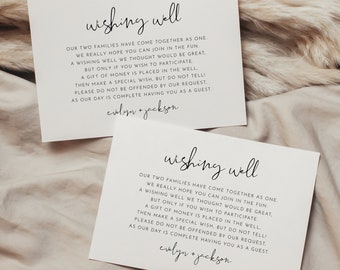 wishing well
OUR TWO FAMILIES HAVE COME TOGETHER AS ONE.
WE REALLY HOPE YOU CAN JOIN IN THE FUN.
A WISHING WELL WE THOUGHT WOULD BE GREAT,
BUT ONLY IF YOU WISH TO PARTICIPATE.
A GIFT OF MONEY IS PLACED IN THE WELL,
THEN MAKE A SPECIAL WISH, BUT DO NOT TELL!
PLEASE DO NOT BE OFFENDED BY OUR REQUEST,
AS OUR DAY IS COMPLETE HAVING YOU AS A GUEST.
evelyn + jackson
wishing well
OUR TWO FAMILIES HAVE COME TOGETHER AS ONE.
WE REALLY HOPE YOU CAN JOIN IN THE FUN.
A WISHING WELL WE THOUGHT WOULD BE GREAT,
BUT ONLY IF YOU WISH TO PARTICIPATE.
A GIFT OF MONEY IS PLACED IN THE WELL,
THEN MAKE A SPECIAL WISH, BUT DO NOT TELL!
PLEASE DO NOT BE OFFENDED BY OUR REQUEST,
AS OUR DAY IS COMPLETE HAVING YOU AS A GUEST.
evelyn + jackson